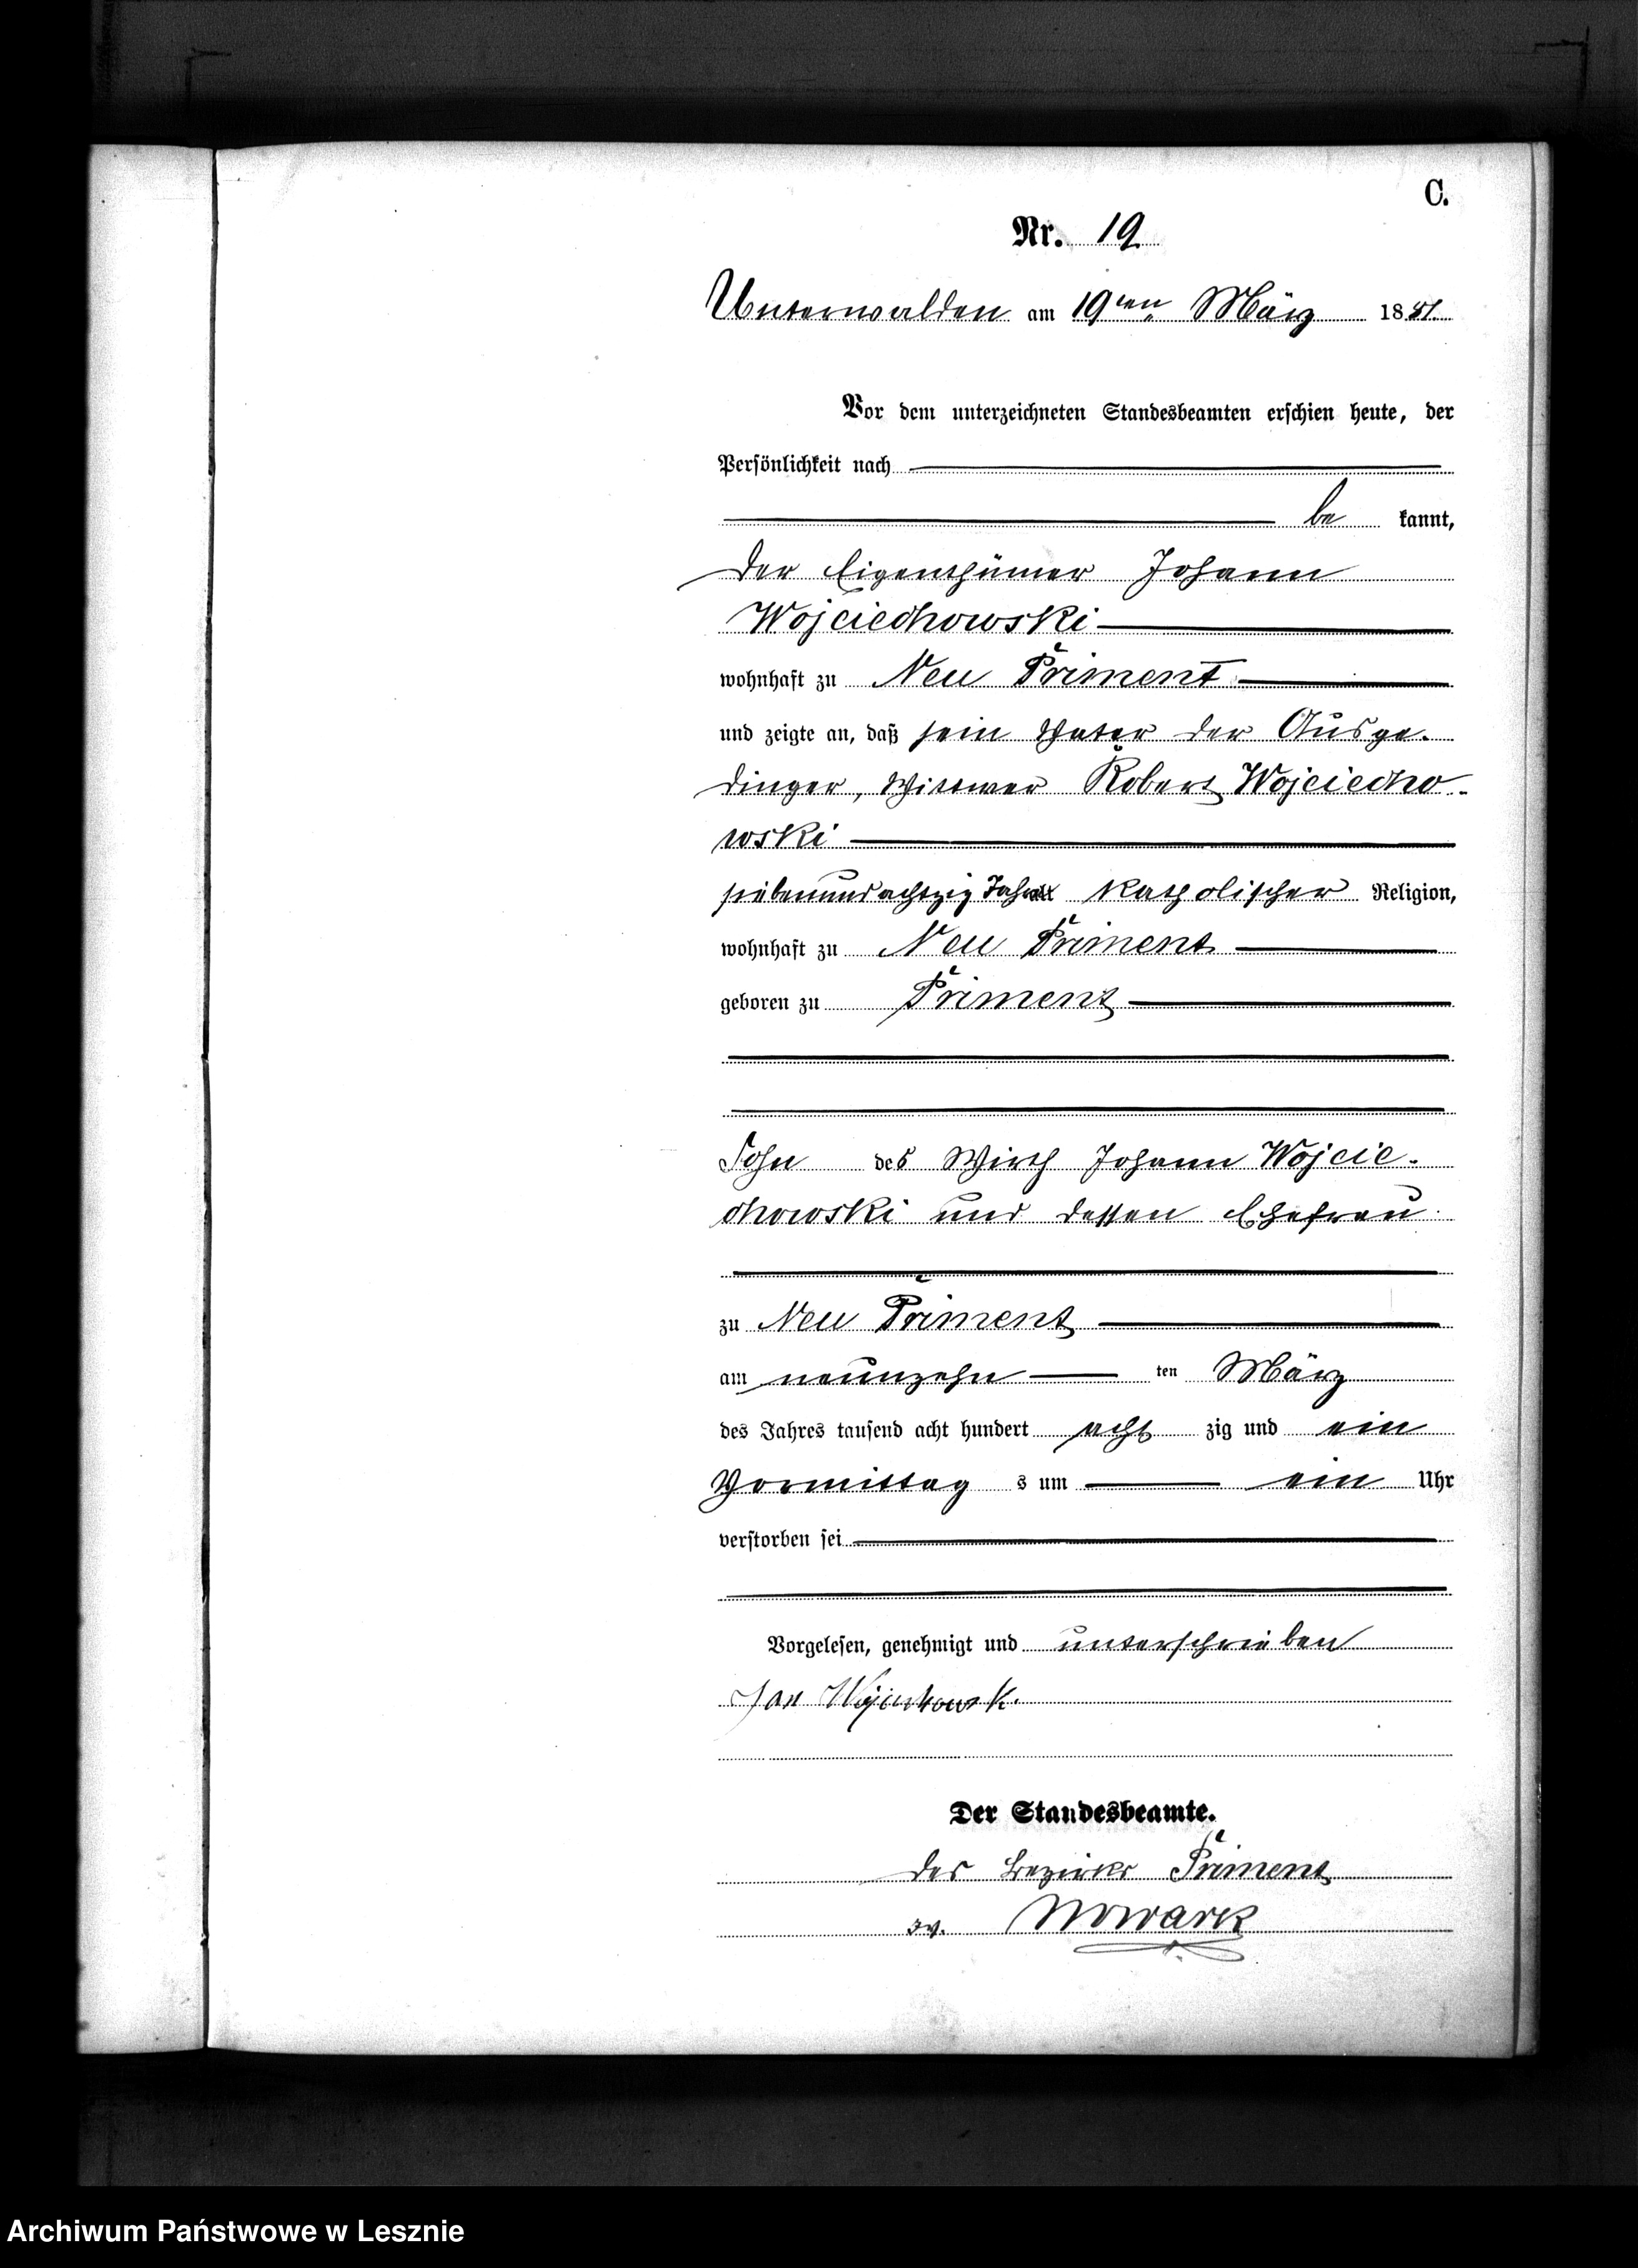 C.
Nr. 19
Unterwalden am 19ten März 1881.
Vor dem unterzeichneten Standesbeamten erschien heute, der
Persönlichkeit nach
be kannt,
der Eigenthümer Johann
Wojciechowski
wohnhaft zu Neu Priment
und zeigte an, daß sein Vater der Ausge-
dinger, Wittwer Robert Wojciecho-
wski
siebenundachtzig Jahre alt katholischer Religion,
wohnhaft zu Neu Priment
geboren zu Priment
Sohn des Wirth Johann Wojcie-
chowski und dessen Ehefrau
zu Neu Priment
am neunzehn ten März
des Jahres tausend acht hundert acht zig und ein
Vormittag s um ein Uhr
verstorben sei
Vorgelesen, genehmigt und unterschrieben
Jan
Der Standesbeamte.
des Bezirks Priment
Nowack
Archiwum Państwowe w Lesznie